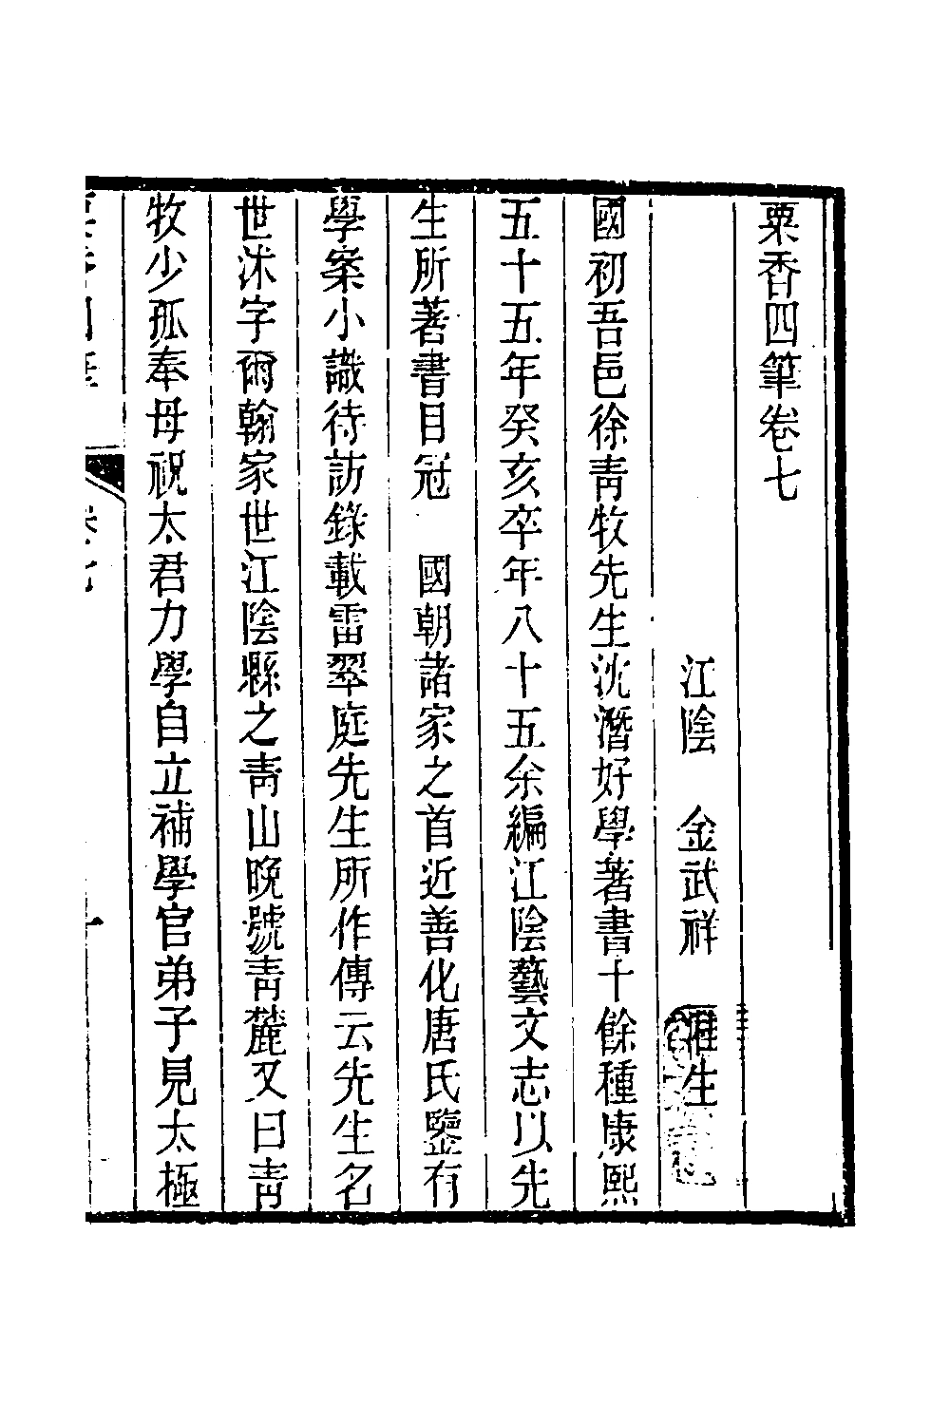 粟香四筆卷七
江陰　金武祥　溎生
國初吾邑徐青牧先生沈潛好學著書十餘種康熙
五十五年癸亥卒年八十五余編江陰藝文志以先
生所著書目冠　國朝諸家之首近善化唐氏鑒有
學案小識待訪錄載雷翠庭先生所作傳云先生名
世沐字爾翰家世江陰縣之青山晚號青麓又曰青
牧少孤奉母祝太君力學自立補學官弟子見太極